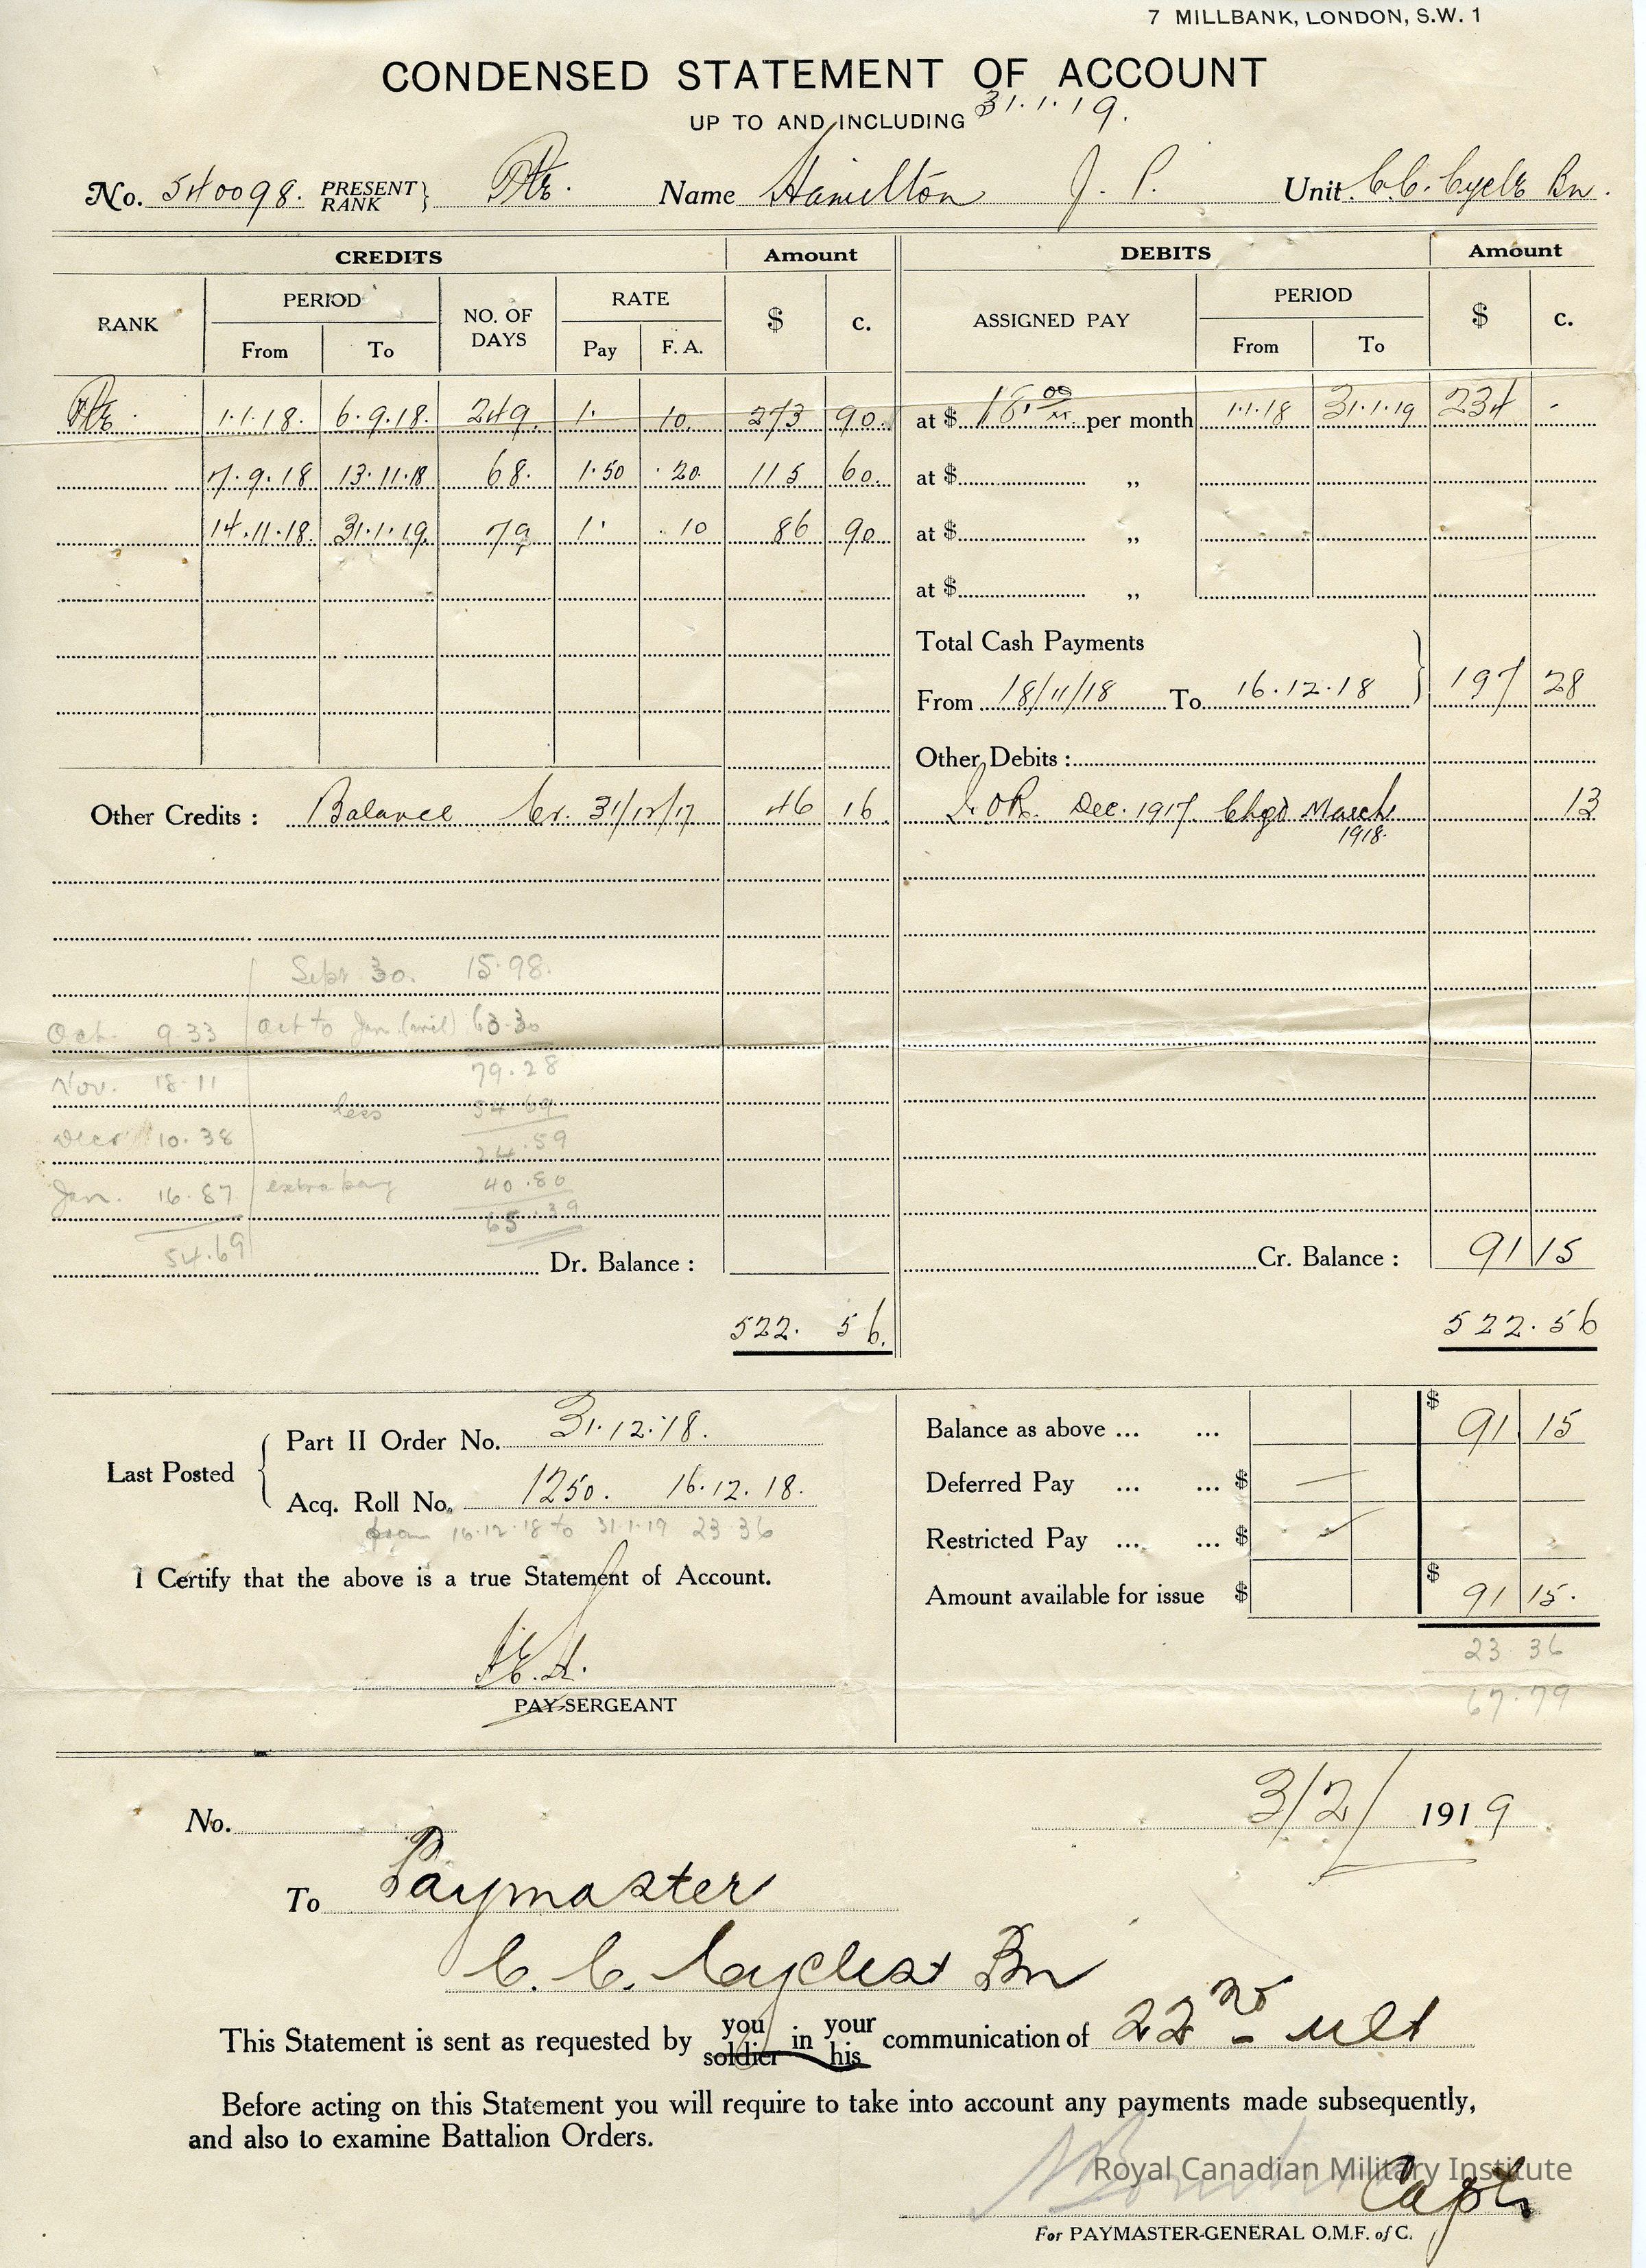 7 MILLBANK, LONDON, S.W. 1
CONDENSED STATEMENT OF ACCOUNT
UP TO AND INCLUDING 31.1.19.
No. 540098. PRESENT RANK } Pte. Name Hamilton J. P. Unit C.C. Cycl Bn.
CREDITS Amount DEBITS Amount
RANK PERIOD NO. OF DAYS RATE $ c. ASSIGNED PAY PERIOD $ c.
From To Pay F. A. From To
Pte. 1.1.18. 6.9.18. 249. 1. 10. 273 90. at $ 18.00 per month 1.1.18 31.1.19 234 -
7.9.18 13.11.18 68. 1.50 .20 115 60. at $ „
14.11.18. 31.1.19. 79 1. .10 86 90 at $ „
at $ „
Total Cash Payments
From 18/11/18 To 16.12.18 } 197 28
Other Debits :
Other Credits : Balance Cr. 31/12/17 46 16. Dec. 1917. Chgd March 1918. 13
Sept 30. 15.98.
Oct. 9.33 Oct to Jan. (incl) 63.30
Nov. 18.11 79.28
less 54.69
Decr 10.38 24.59
Jan. 16.87 extra pay 40.80
65.39
54.69
Dr. Balance : Cr. Balance : 91 15
522. 56. 522.56
Last Posted { Part II Order No. 31.12.18.
Acq. Roll No. 1250. 16.12.18.
from 16.12.18 to 31.1.19 23.36
I Certify that the above is a true Statement of Account.
PAY SERGEANT
Balance as above ... ... $ 91 15
Deferred Pay ... ... $
Restricted Pay ... ... $
Amount available for issue $ $ 91 15.
23 36
67.79
No. 3/2/ 1919
To Paymaster
C. C. Cyclist Bn
This Statement is sent as requested by you soldier in your his communication of 22nd ult
Before acting on this Statement you will require to take into account any payments made subsequently,
and also to examine Battalion Orders.
Royal Canadian Military Institute
Capt
For PAYMASTER-GENERAL O.M.F. of C.